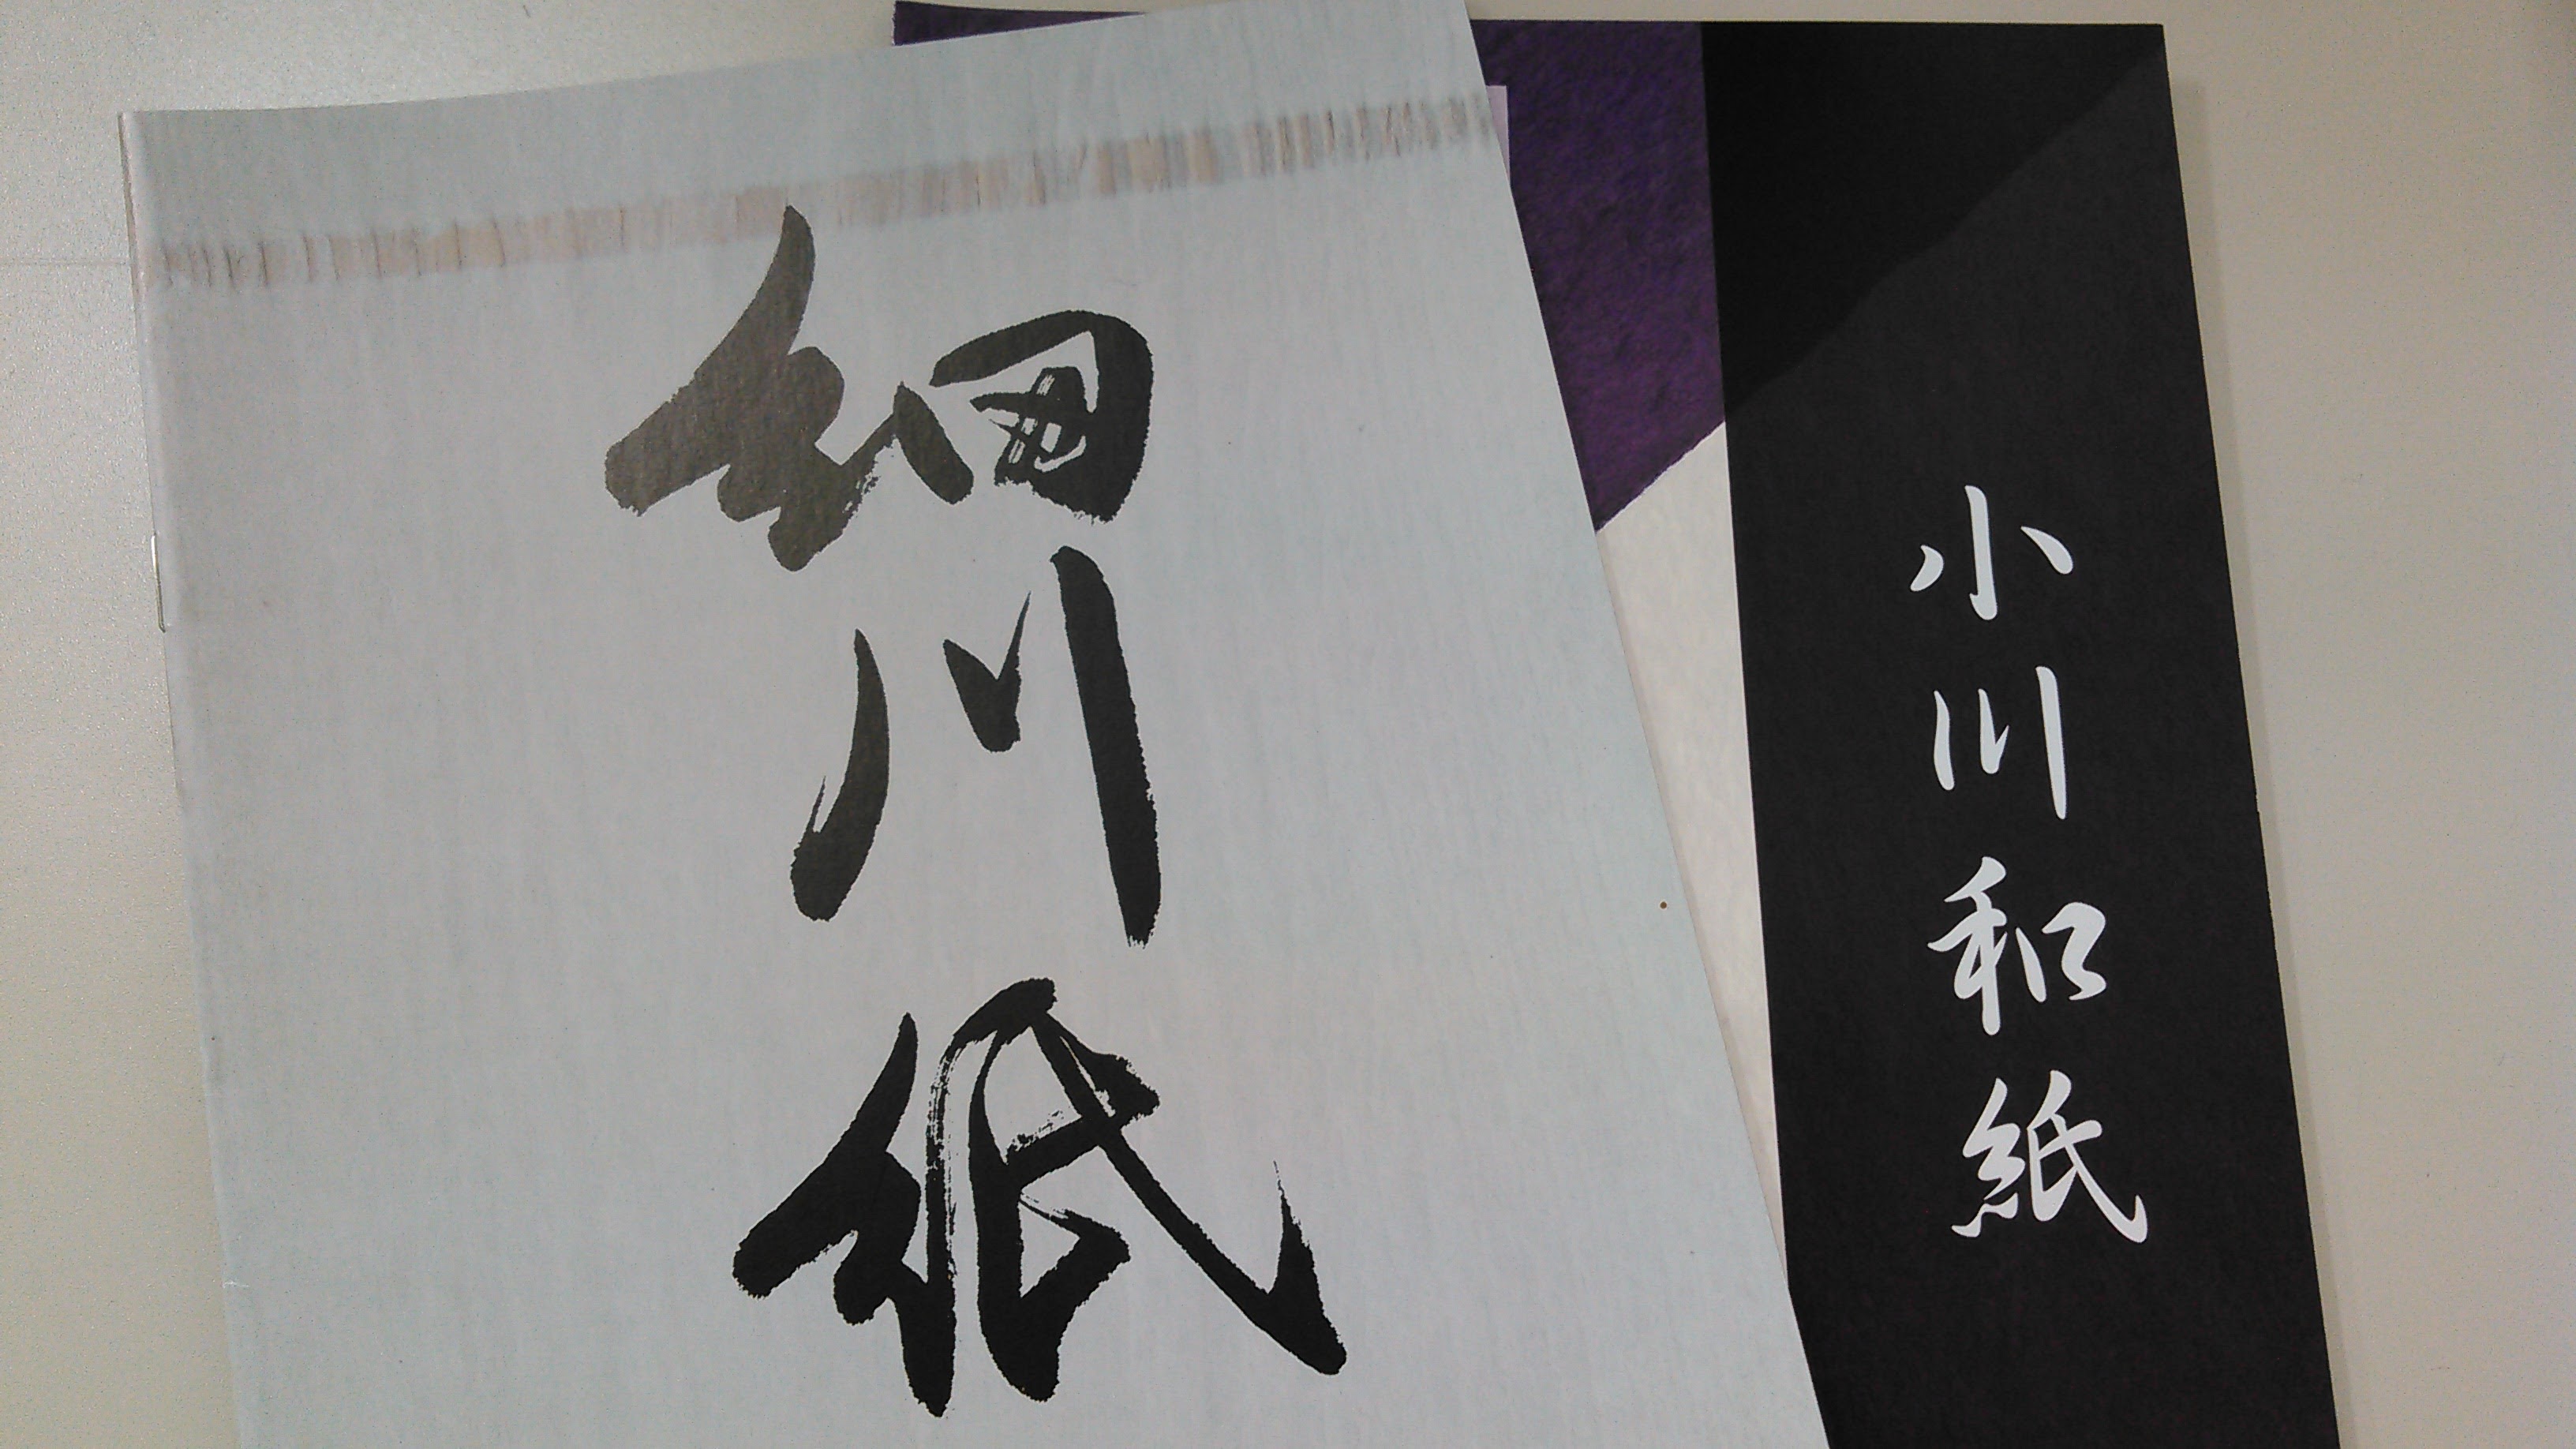 細川紙
小川和紙